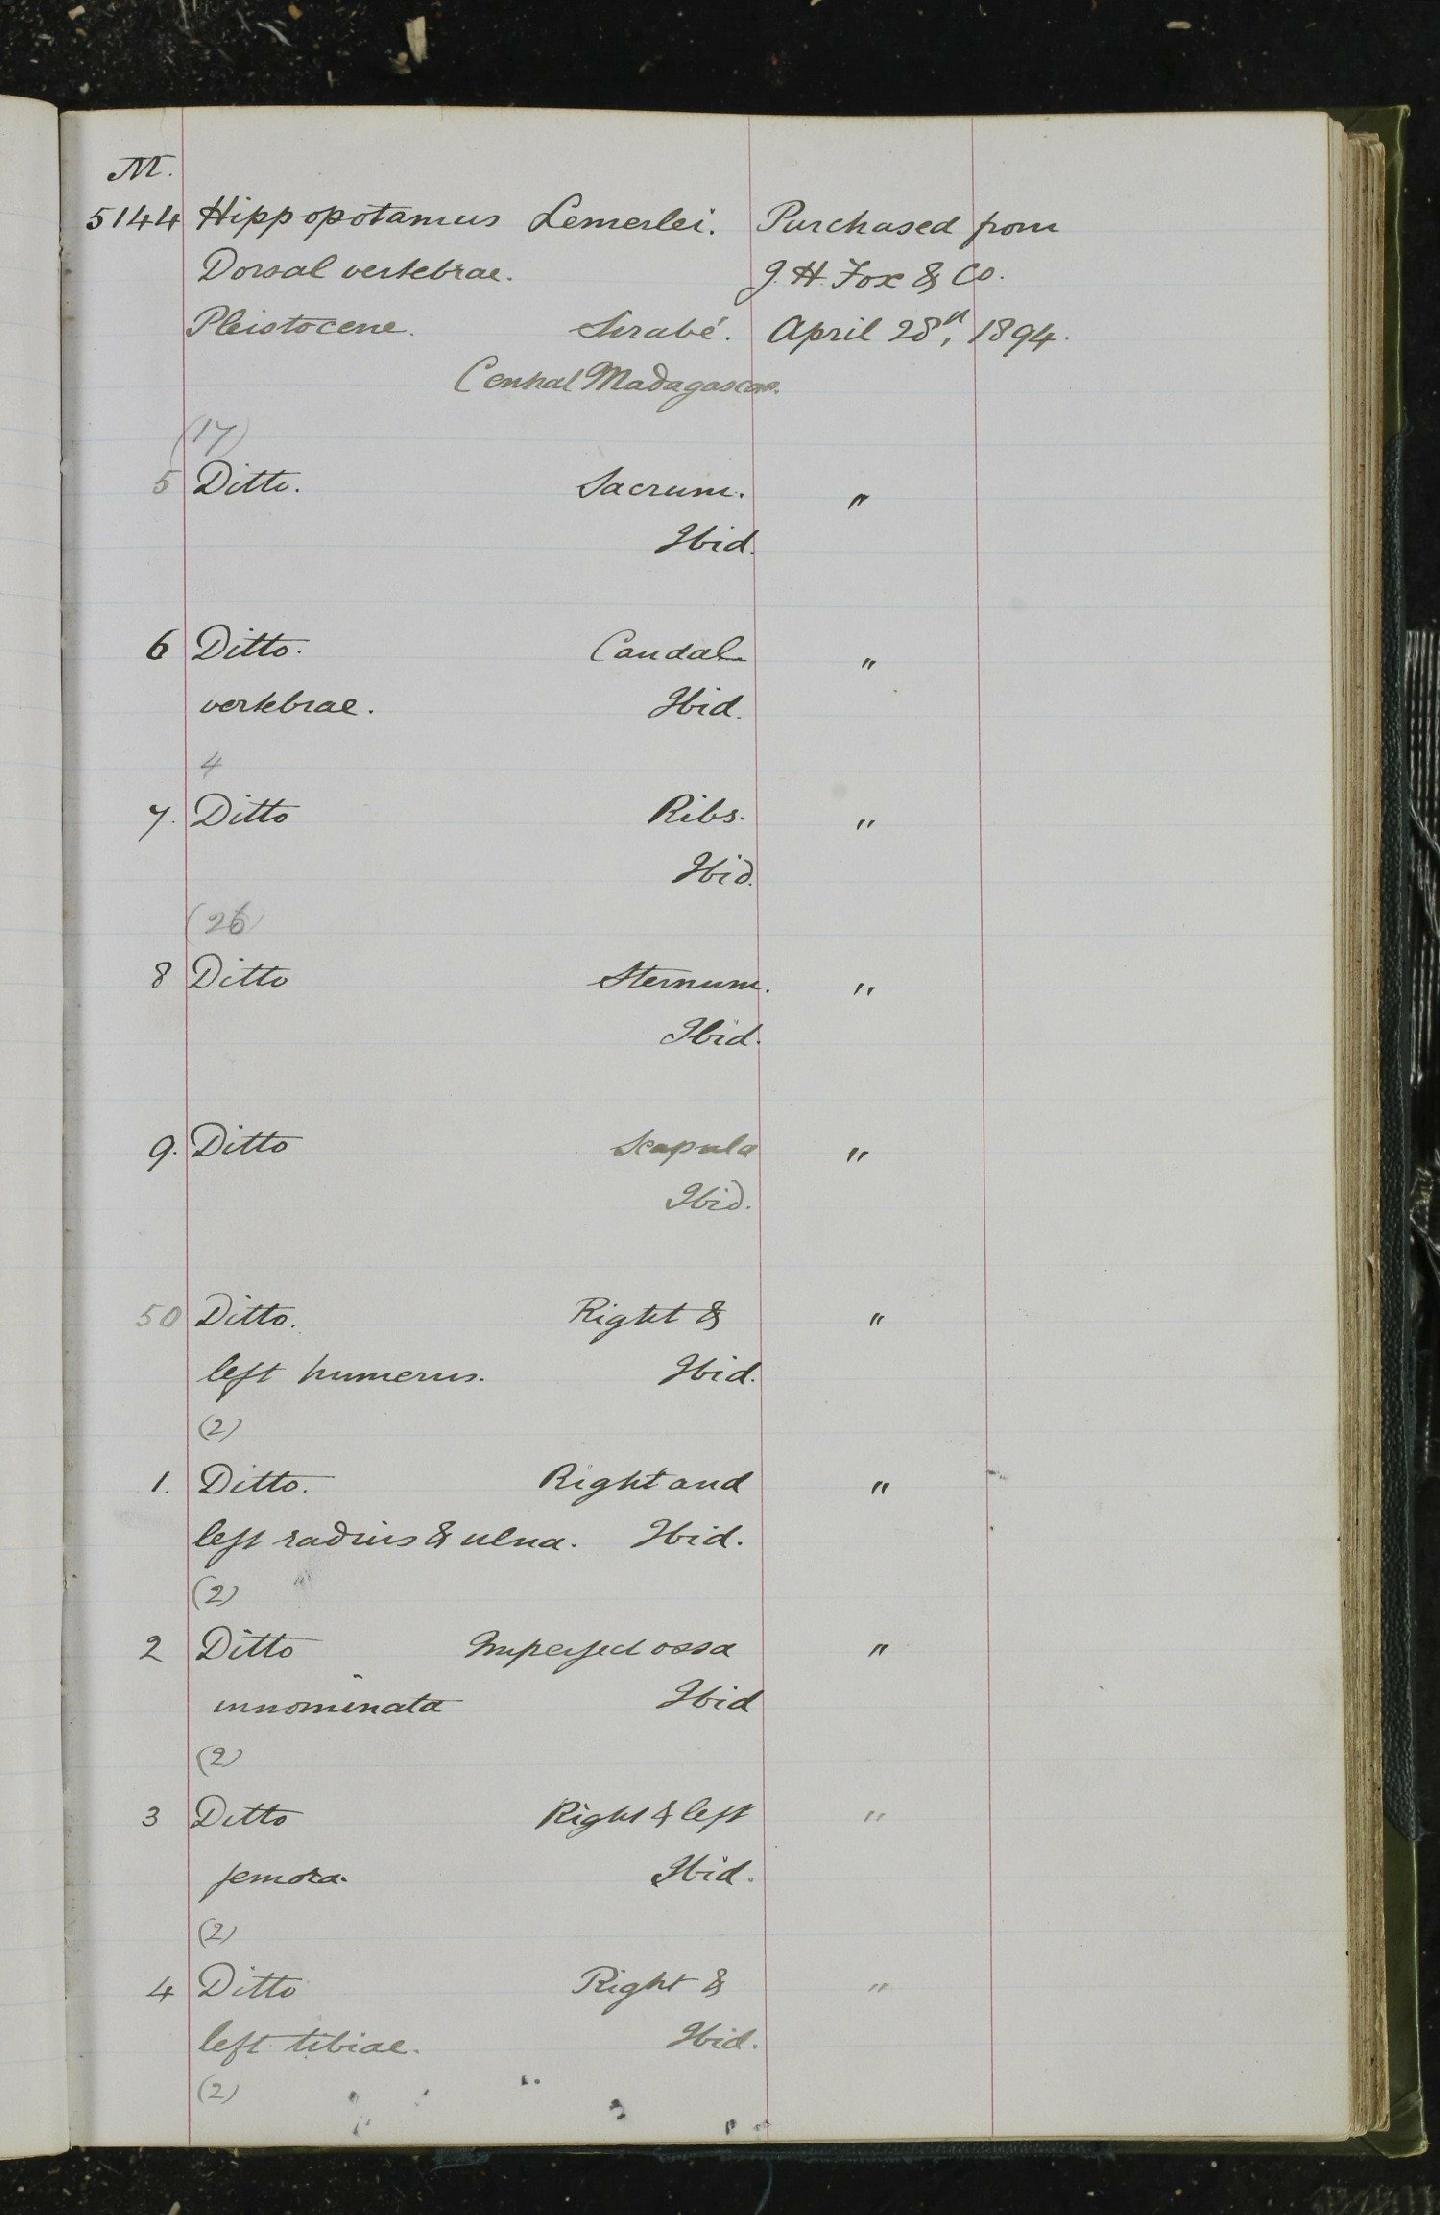 M.
5144 Hippopotamus Lemerlei. Purchased from
Dorsal vertebrae. J. H. Fox & Co.
Pleistocene. Sirabé. April 28th, 1894.
Central Madagascar.
(17)
5 Ditto. Sacrum. "
Ibid.
6 Ditto. Caudal "
vertebrae. Ibid.
4
7. Ditto Ribs. "
Ibid.
(26)
8 Ditto Sternum. "
Ibid.
9. Ditto Scapula "
Ibid.
50 Ditto. Right & "
left humerus. Ibid.
(2)
1. Ditto. Right and "
left radius & ulna. Ibid.
(2)
2 Ditto Imperfect ossa "
innominata Ibid
(2)
3 Ditto Right & left "
femora. Ibid.
(2)
4 Ditto Right & "
left tibiae. Ibid.
(2)